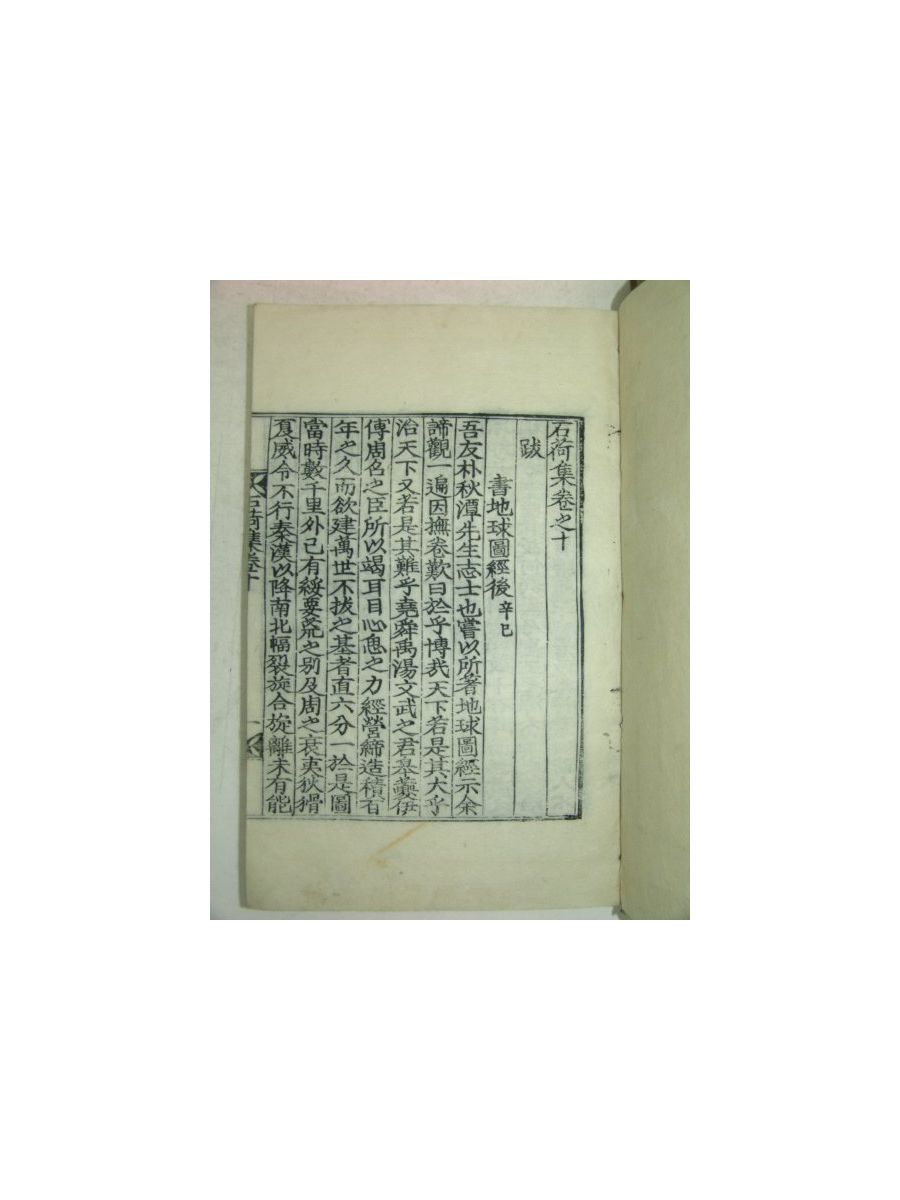 石荷集卷之十
跋
書地球圖經後 辛巳
吾友朴秋潭先生志士也嘗以所著地球圖經示余
諦觀一遍因撫卷歎曰於乎博哉天下若是其大乎
治天下又若是其難乎堯舜禹湯文武之君皋夔伊
傅周召之臣所以竭耳目心思之力經營締造積百
年之久而欲建萬世不拔之基者直六分一於是圖
當時數千里外已有綏要荒之別及周之衰夷狄猾
夏威令不行秦漢以降南北幅裂旋合旋離未有能
石荷集卷十
一